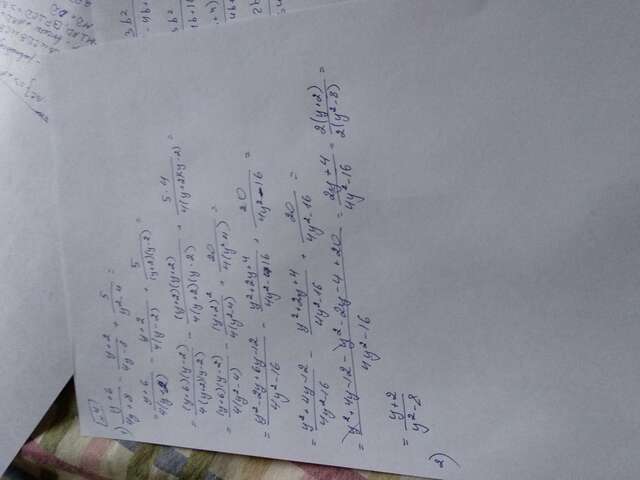 №4
1) (y+6)/(4y+8) - (y+2)/(4y-8) + 5/(y²-4) =
= (y+6)/(4(y+2)) - (y+2)/(4(y-2)) + 5/((y+2)(y-2)) =
= ((y+6)(y-2))/(4(y+2)(y-2)) - ((y+2)(y+2))/(4(y+2)(y-2)) + (5·4)/(4(y+2)(y-2)) =
= ((y+6)(y-2))/(4(y²-4)) - (y+2)²/(4(y²-4)) + 20/(4(y²-4)) =
= (y²-2y+6y-12)/(4y²-16) - (y²+2y+4)/(4y²-16) + 20/(4y²-16) =
= (y²+4y-12)/(4y²-16) - (y²+2y+4)/(4y²-16) + 20/(4y²-16) =
= (y²+4y-12-y²-2y-4+20)/(4y²-16) = (2y+4)/(4y²-16) = (2(y+2))/(2(y²-8)) =
= (y+2)/(y²-8)
2)